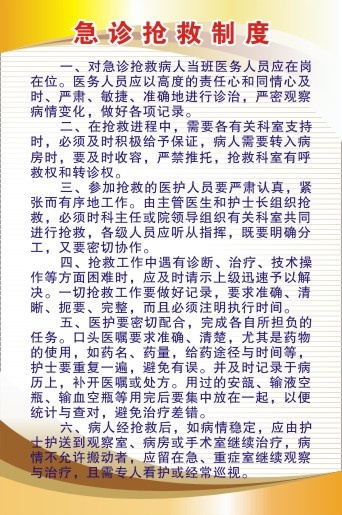 急诊抢救制度
一、对急诊抢救病人当班医务人员应在岗
在位。医务人员应以高度的责任心和同情心及
时、严肃、敏捷、准确地进行诊治，严密观察
病情变化，做好各项记录。
二、在抢救进程中，需要各有关科室支持
时，必须及时积极给予保证，病人需要转入病
房时，要及时收容，严禁推托，抢救科室有呼
救权和转诊权。
三、参加抢救的医护人员要严肃认真，紧
张而有序地工作。由主管医生和护士长组织抢
救，必须时科主任或院领导组织有关科室共同
进行抢救，各级人员应听从指挥，既要明确分
工，又要密切协作。
四、抢救工作中遇有诊断、治疗、技术操
作等方面困难时，应及时请示上级迅速予以解
决。一切抢救工作要做好记录，要求准确、清
晰、扼要、完整，而且必须注明执行时间。
五、医护要密切配合，完成各自所担负的
任务。口头医嘱要求准确、清楚，尤其是药物
的使用，如药名、药量，给药途径与时间等，
护士要重复一遍，避免有误。并及时记录于病
历上，补开医嘱或处方。用过的安瓿、输液空
瓶、输血空瓶等用完后要集中放在一起，以便
统计与查对，避免治疗差错。
六、病人经抢救后，如病情稳定，应由护
士护送到观察室、病房或手术室继续治疗，病
情不允许搬动者，应留在急、重症室继续观察
与治疗，且需专人看护或经常巡视。